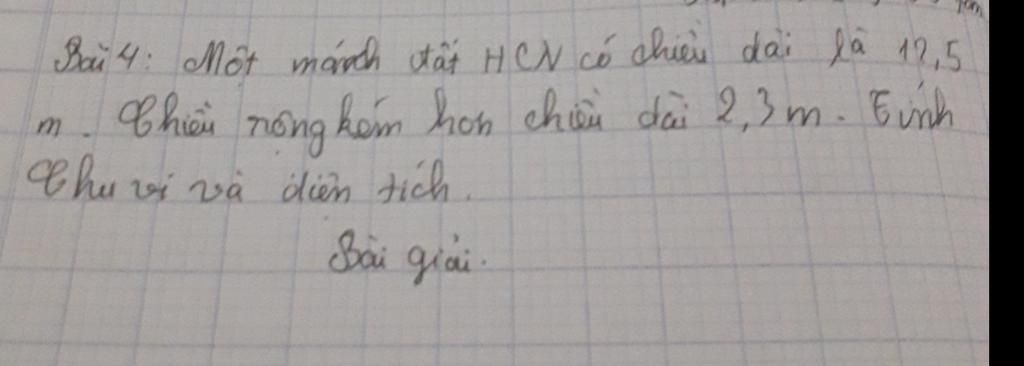 Bài 4: Một mảnh đất HCN có chiều dài là 12,5
m. Chiều rông kém hơn chiều dài 2,3m. Tính
Chu vi và diện tích.
Bài giải.